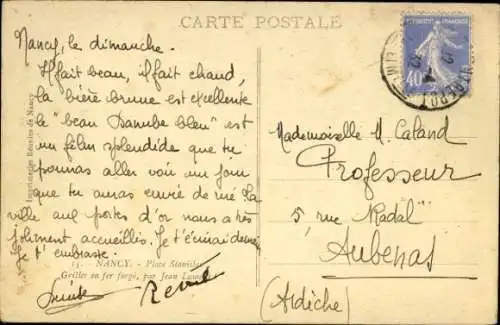 CARTE POSTALE
Nancy, le dimanche.
Il fait beau, il fait chaud,
la bière brune est excellente
le "beau Danube bleu" est
un film splendide que tu
pourras aller voir un jour
que tu auras envie de La
ville aux portes d'or nous a très
joliment accueillis. Je t'
Je t'embrasse.
13. NANCY. - Place Stanislas
Grilles en fer forgé, par Jean Lamour
Imprimeries Réunies de Nancy
40
Mademoiselle M. Caland
Professeur
5, rue Radal
Aubenas
(Ardèche)